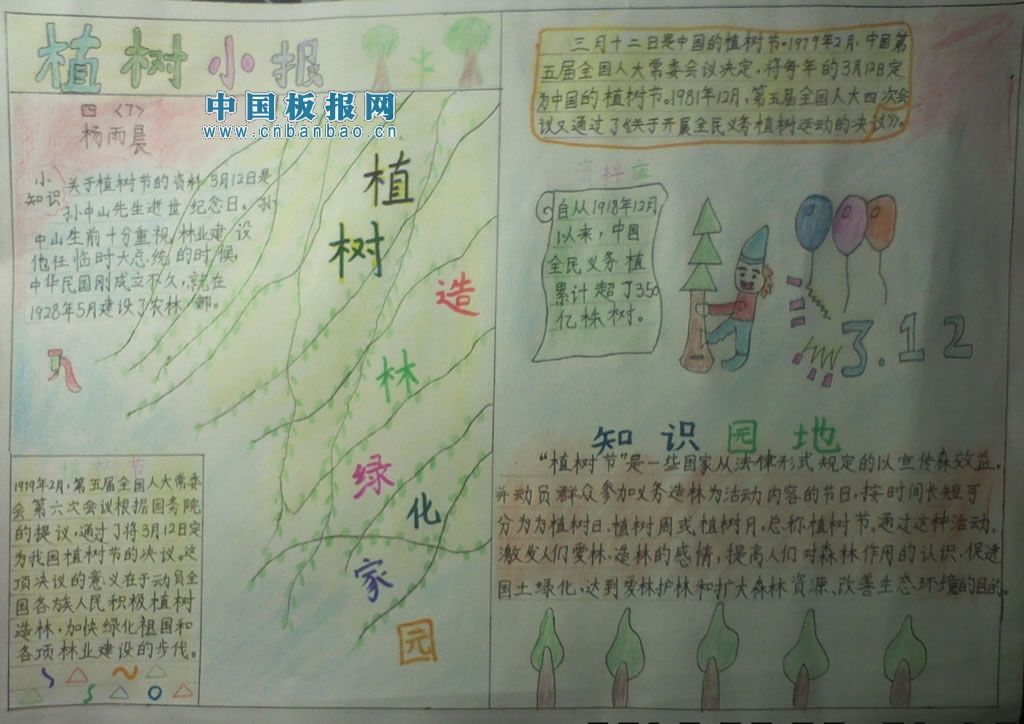 植树小报
中国板报网
www.cnbanbao.cn
四〈7〉
杨雨晨
小知识
关于植树节的资料 3月12日是
孙中山先生逝世纪念日。孙
中山生前十分重视林业建设
他任临时大总统的时候,
中华民国刚成立不久,就在
1928年5月建设了农林部。
植树
造林
绿化
家园
1979年2月,第五届全国人大常委
会第六次会议根据国务院
的提议,通过了将3月12日定
为我国植树节的决议。这
项决议的意义在于动员全
国各族人民积极植树
造林,加快绿化祖国和
各项林业建设的步伐。
三月十二日是中国的植树节。1979年2月,中国第
五届全国人大常委会议决定,将每年的3月12日定
为中国的植树节。1981年12月,第五届全国人大四次会
议又通过了《关于开展全民义务植树运动的决议》。
资料库
自从1918年12月
以来,中国
全民义务植
累计超了350
亿株树。
3.12
知识园地
“植树节”是一些国家从法律形式规定的以宣传森效益,
并动员群众参加义务造林为活动内容的节日,按时间长短可
分为为植树日、植树周或植树月,总称植树节。通过这种活动,
激发人们爱林、造林的感情,提高人们对森林作用的认识,促进
国土绿化,达到爱林护林和扩大森林资源、改善生态环境的目的。